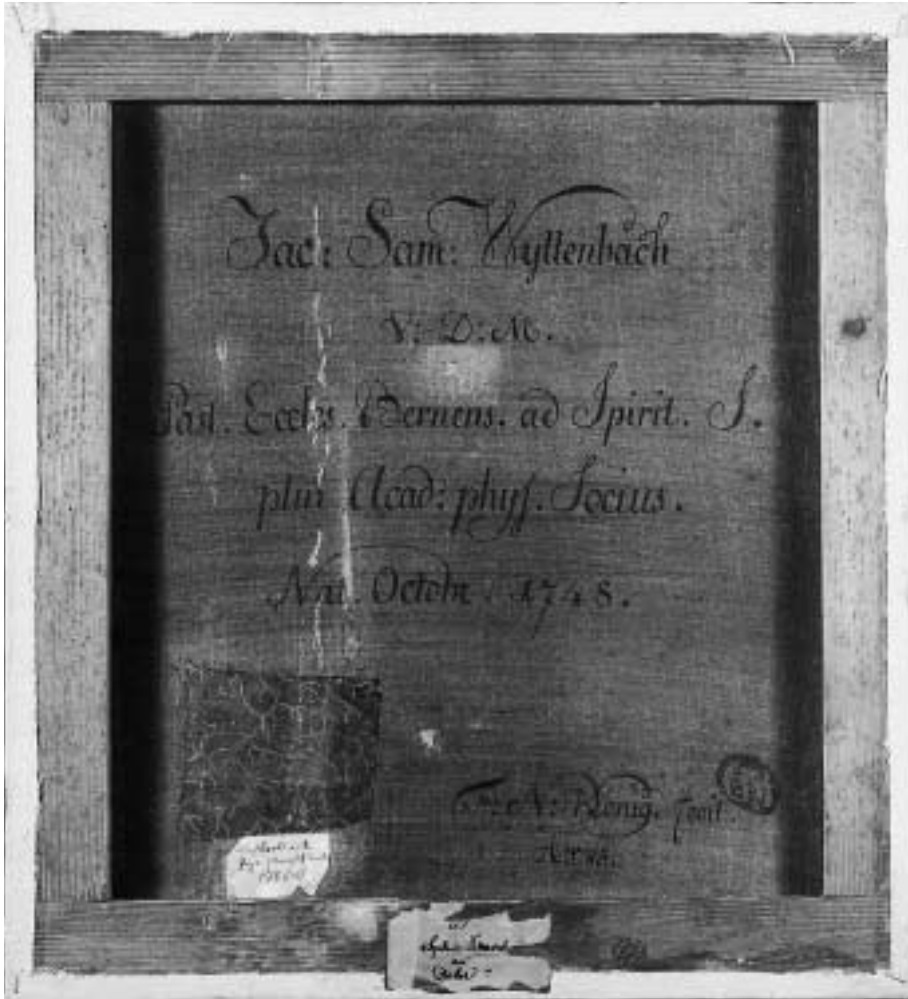 Jac: Sam: Wyttenbach
V: D: M.
Past. Eccles. Bernens. ad Spirit. S.
plur Acad: phyſſ. Socius.
Nat. Octobr. 1748.
Fr: N: König. fecit.